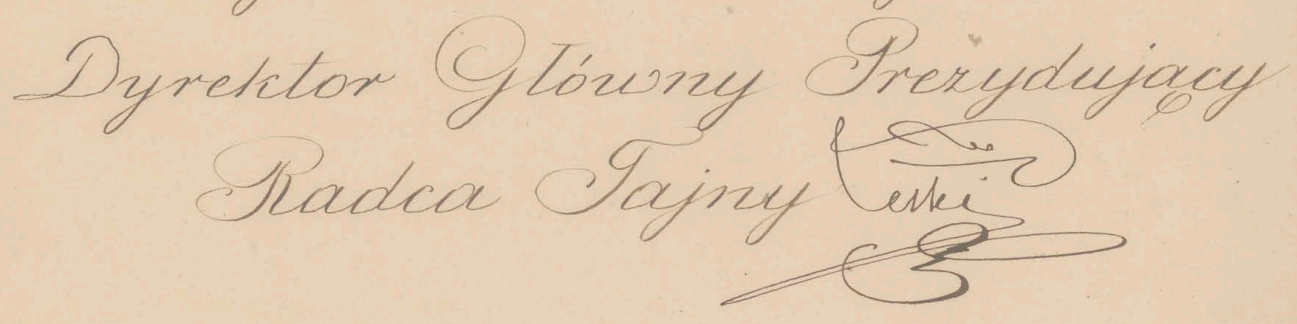 Dyrektor Główny Prezydujący
Radca Tajny